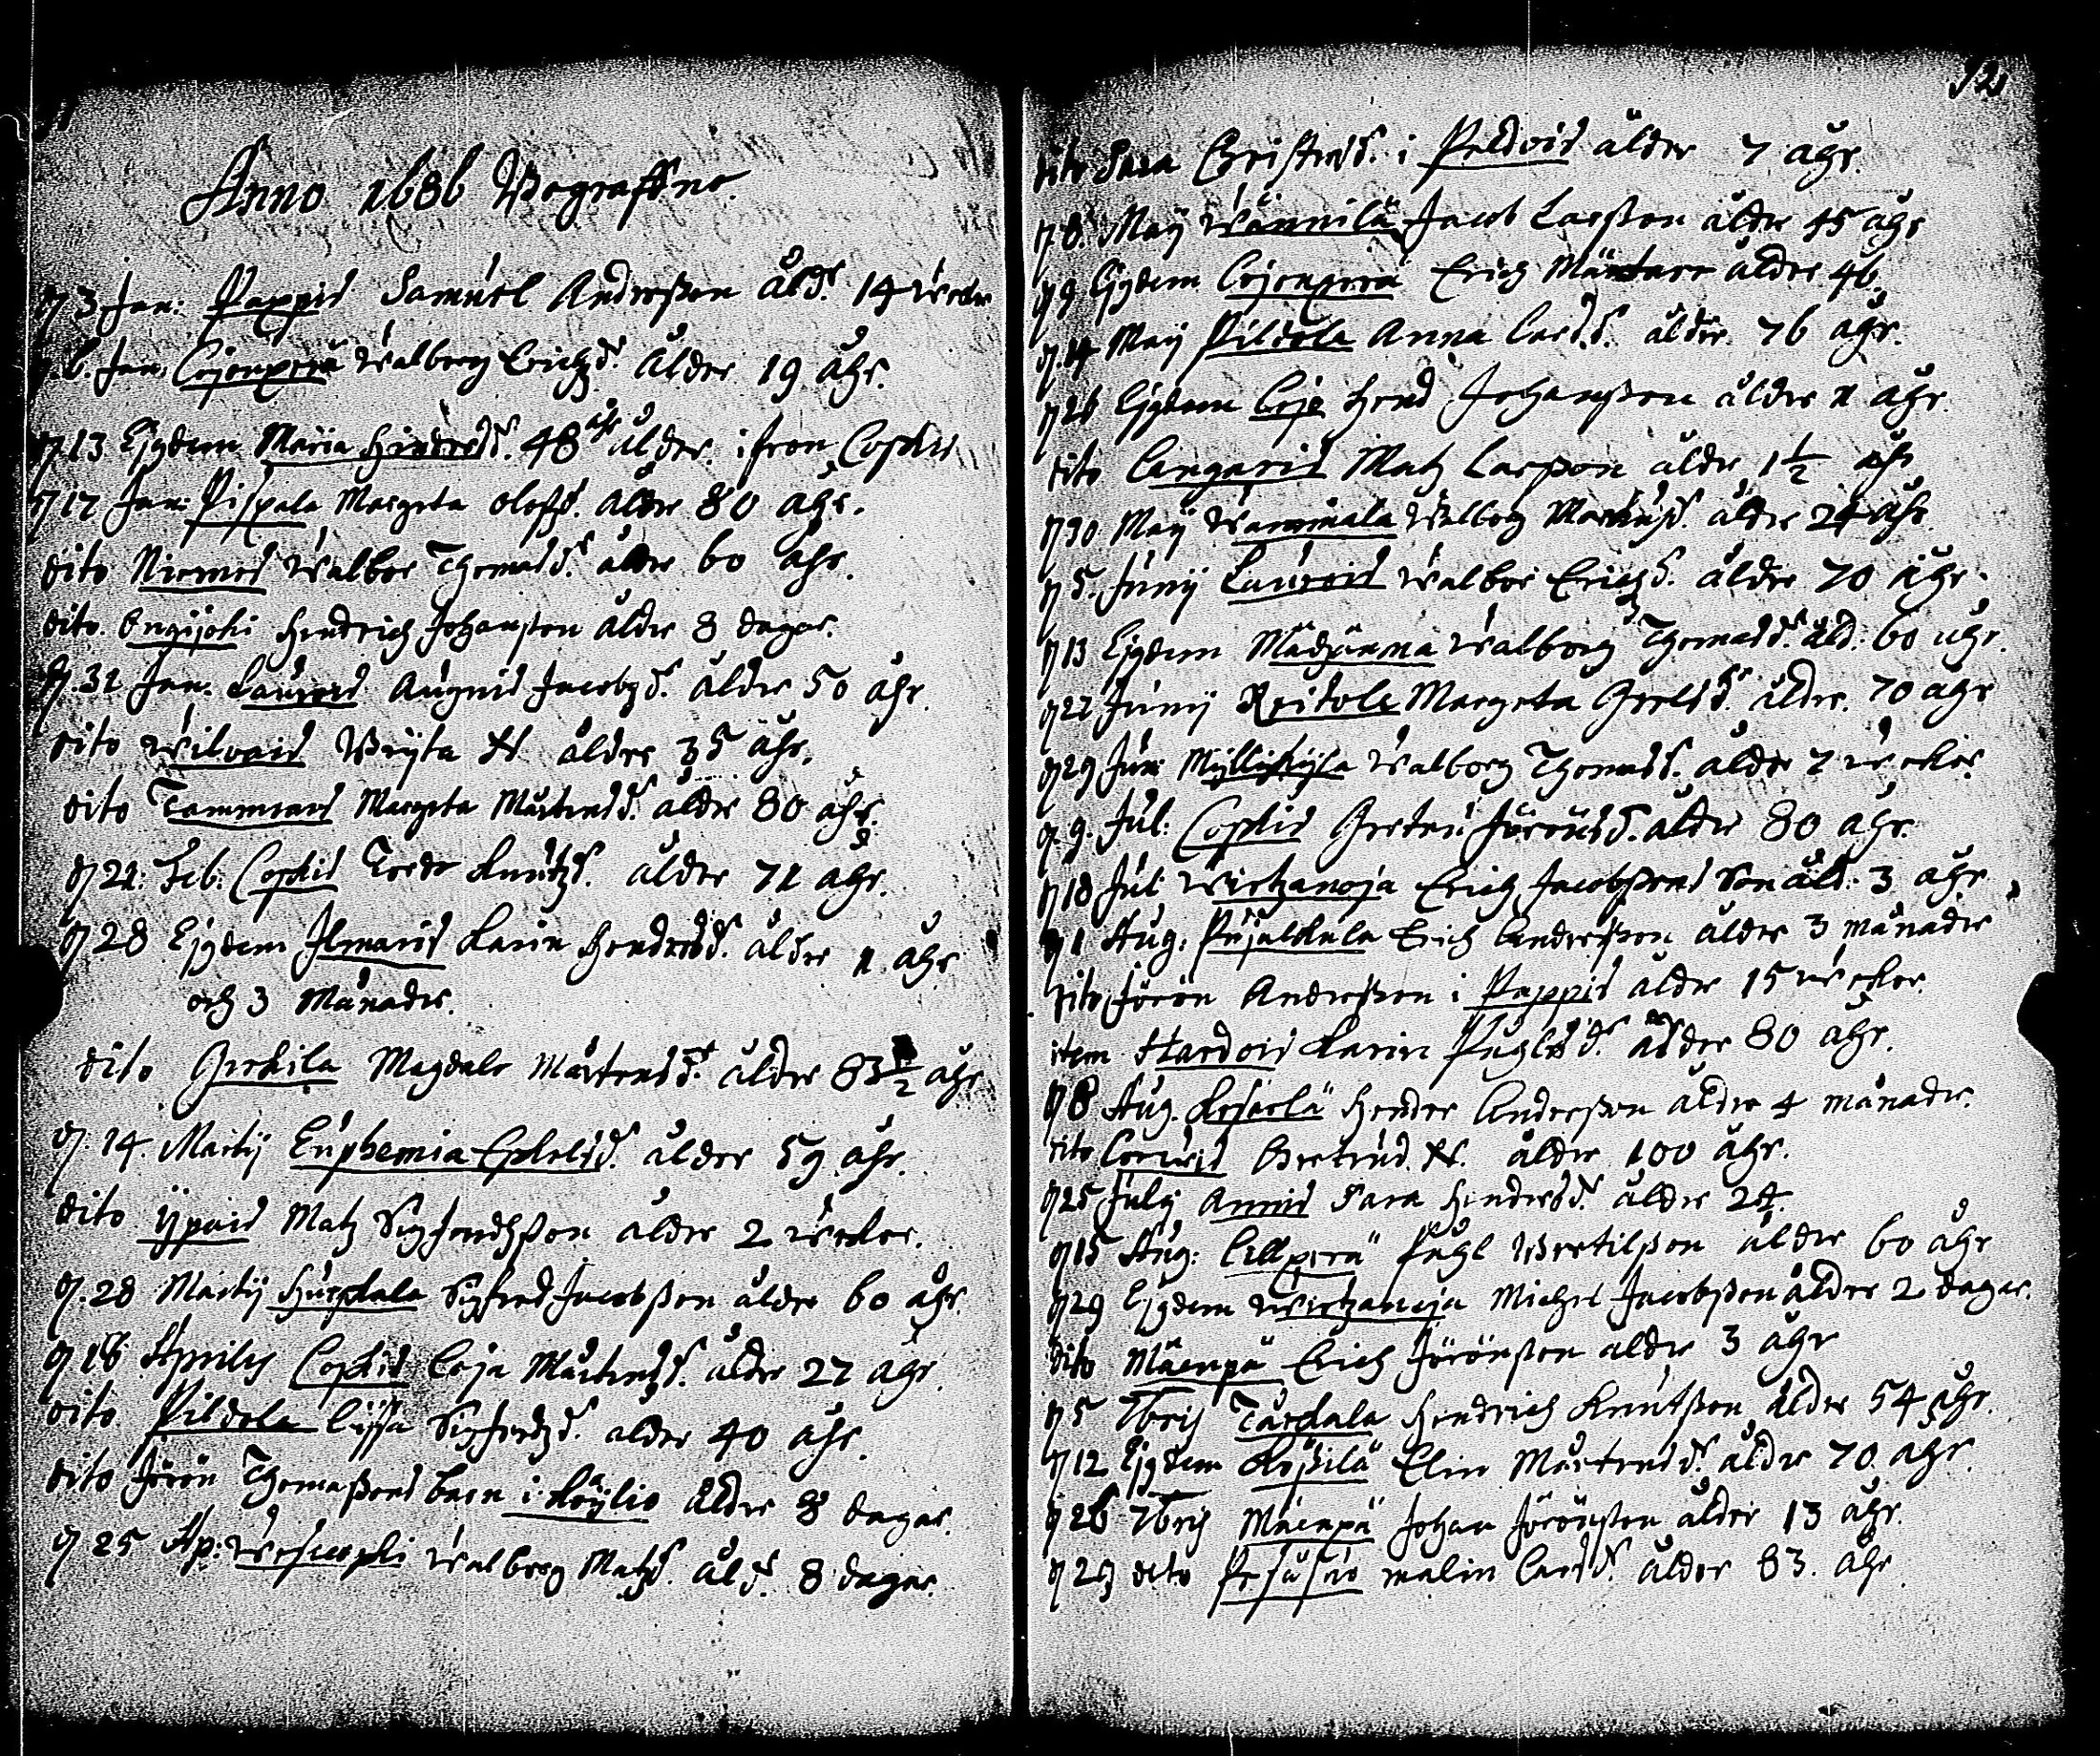 Anno 1686 Begrafne.
d 3 Jan: Pappis Samuel Andersson åld. 14 weck
d. 6. Jan. Cojonperä Walborg Erichsd. ålder 19 åhr.
d. 13 Ejusdem Maria Hindersd. 48 åhr ålder. ifron Coskis
d 17 Jan: Pispala Margeta olofsd. ålder 80 åhr.
dito Niemes Walbor Thomasd. ålder 60 åhr.
dito. Ongijoki Hendrich Johansson ålder 8 dagar.
d. 31 Jan. Laurois Augnis Jacobsd. ålder 50 åhr.
dito Wilvais Brijta N. ålder 35 åhr.
dito Tammiais Margeta Mårtensd. ålder 80 åhr.
d 21: Feb. Coskis Knutzd. ålder 71 åhr.
d 28 Ejusdem Ilmaris Karin Hendersd. ålder 1 åhr
och 3 Månader.
dito Grekila Magdale Mårtensd. ålder 83 1/2 åhr
d. 14. Martij Euphemia Eskelsd. ålder 59 åhr.
dito ijpais Matz Sigfredsson ålder 2 weckor.
d. 28 Martij Hueskala Sigfred Jacobsson ålder 60 åhr.
d 18 Aprilis Coskis Caja Mårtensd. ålder 27 åhr.
dito Pildola Lissa Sigfredzd. ålder 40 åhr.
dito Jörön Thomassons barn i Köijlio ålder 8 dagar.
d 25 Ap: Wesicoski Walborg Matzd. åld. 8 dagar.
12
dito Sara Christersd. i Peldois ålder 7 åhr.
d 8. Maij Wännilä Jacob Larsson ålder 45 åhr
d 9 Ejusdem Cojonperä Erich Månsson ålder 46.
d. 14 Maij Pildola Anna Larsd. ålder 76 åhr.
d 26 Ejusdem Cojo Hend Johansson ålder 1 åhr.
dito Cangaris Matz Larsson ålder 1 1/2 åhr
d 30 Maij Wammala Walborg Markusd. ålder 24 åhr.
d 5. Junij Laurois Walbor Erichsd. ålder 70 åhr.
d 13 Ejusdem Mädjänmä Walborg Thomasd. åld: 60 åhr.
d 22 Junij Reikola Margeta Grelsd. ålder. 70 åhr
d 29 Jun: Myllykylä Walborg Thomasd. ålder 7 weckor
d. 9. Jul: Coskis Gretru Jörönsd. ålder 80 åhr.
d 18 Jul: Wirtzanoja Erich Jacobssons Son åld: 3 åhr
d 1 Aug: Pujalkala Erich Andersson ålder 3 månader
dito Jörön Andersson i Pappis ålder 15 weckor.
item Hardois Karin Påhlsd. ålder 80 åhr.
d 8 Aug. Kesselä Hender Andersson ålder 4 månader.
dito Couvois Gertrud. N. ålder 100 åhr.
d 25 Julij Annis Sara Hendersd. ålder 24.
d 15 Aug: Lillperä Påhl Bertilsson ålder 60 åhr
d 29 Ejusdem Wirtzanoja Michel Jacobsson ålder 2 dagar.
dito Mäenpä Erich Jörönsson ålder 3 åhr
d 5 7bris Tåurkala Hendrich Knutsson ålder 54 åhr.
d 12 Ejusdem Kössilä Elin Mårtensd. ålder 70 åhr.
d 26 7bris Mäenpä Johan Jörönsson ålder 13 åhr.
d 29 dito Pesusuo malin Larsd. ålder 83. åhr